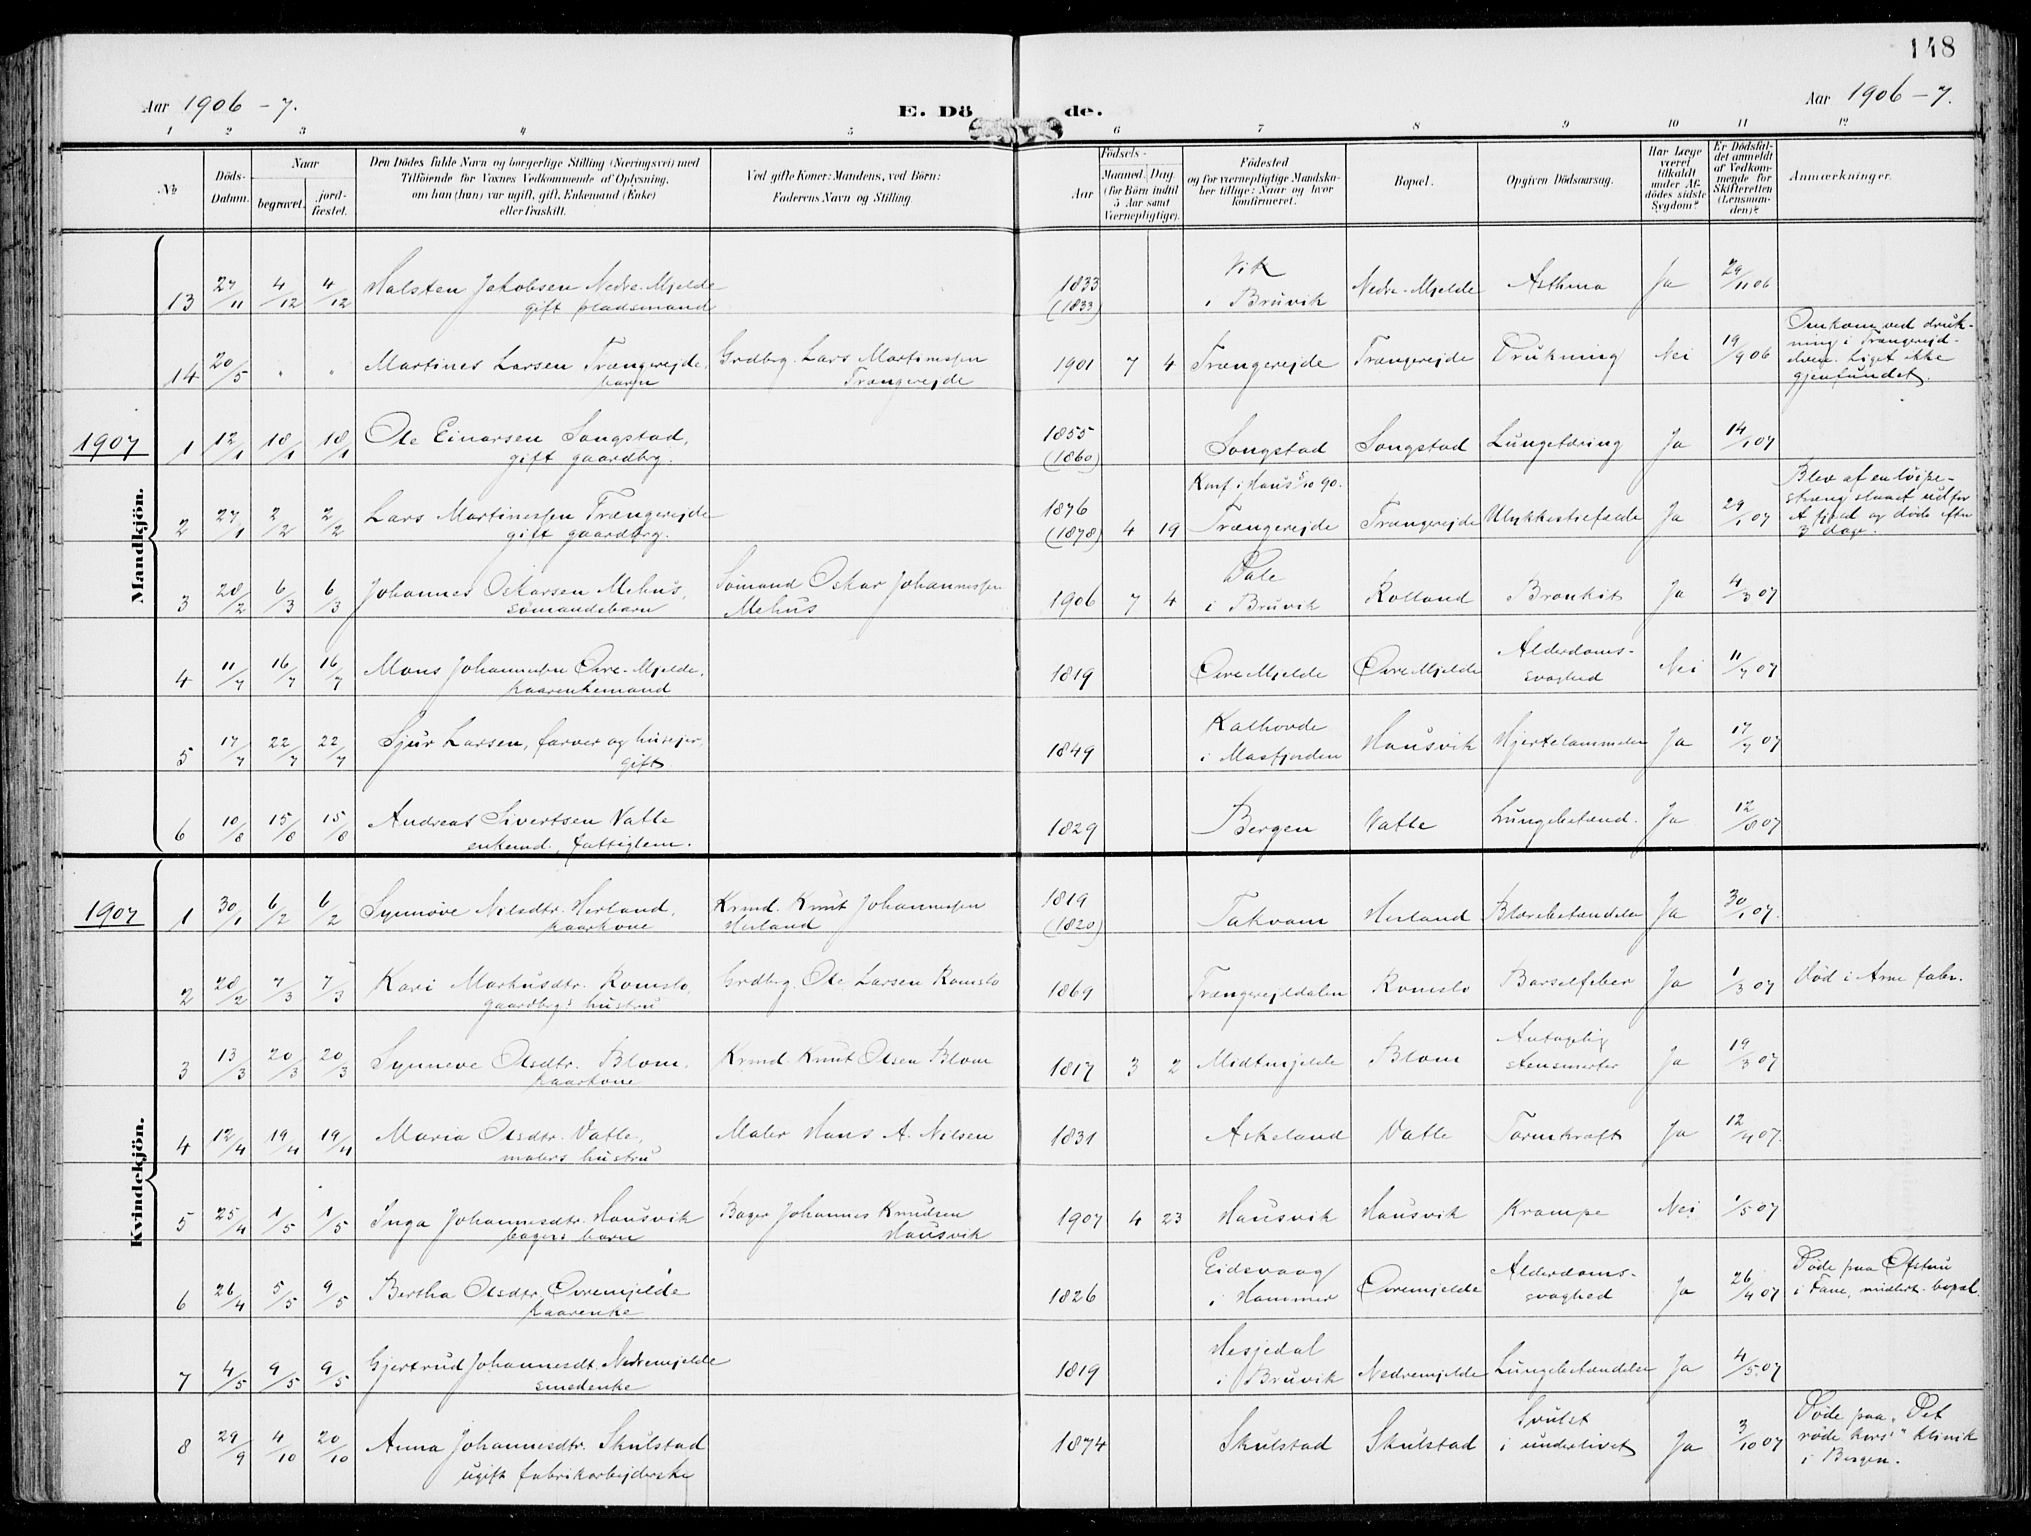 148
Aar 1906 - 7.
E. Dö de.
Aar 1906 - 7.
1 2 3 4 5 6 7 8 9 10 11 12
No
Döds-Datum.
Naar begravet. jord-fæstet.
Den Dödes fulde Navn og borgerlige Stilling (Næringsvei) med
Tilföiende for Voxnes Vedkommende af Oplysning,
om han (hun) var ugift, gift, Enkemand (Enke)
eller fraskilt.
Ved gifte Koner: Mandens, ved Börn:
Faderens Navn og Stilling.
Födsels-
Aar Maaned. Dag.
(for Börn indtil
5 Aar samt
Værnepligtige).
Födested
og for værnepligtige Mandska-
ber tillige: Naar og hvor
konfirmeret.
Bopæl.
Opgiven Dödsaarsag.
Har Læge
været
tilkaldt
under Af-
dödes sidste
Sygdom?
Er Dödsfal-
det anmeldt
af Vedkom-
mende for
Skifteretten
(Lensman-
den)?
Anmærkninger.
Mandkjön.
13 27/11 4/12 4/12 Halsten Jakobsen Nedre-Mjelde 1833 Vik Nedre-Mjelde Asthma Ja 29/11 06
gift pladsmand (1833) i Bruvik
14 20/5 " " Martines Larsen Trængerejde, Grdbrg. Lars Martinessen 1901 7 4 Trængereide Trængerejde Drukning Nei 19/9 06 Omkom ved druk-
barn Trængerejde ning i Trængerejd-
elven. Liget ikke
gjenfundet.
1907 1 12/1 18/1 18/1 Ole Einarsen Songstad, 1855 Songstad Songstad Lungetæring Ja 14/1 07
gift gaardbrg. (1860)
2 27/1 2/2 2/2 Lars Martinessen Trængerejde 1876 Konf. i Haus 5/10 90. Trængerejde Trængerejde Ulykkestilfælde Ja 29/1 07 Blev af en löipe-
gift gaardbrg. (1878) 4 19 stræng slaaet ud for
et fjeld og döde efter
3 dage.
3 28/2 6/3 6/3 Johannes Oskarsen Mehus, Sömand Oskar Johannessen 1906 7 4 Dale Rolland Bronkit Ja 4/3 07
sömandsbarn Mehus i Bruvik
4 11/7 16/7 16/7 Mons Johannessen Övre-Mjelde, 1819 Övre Mjelde Övre Mjelde Alderdoms- Nei 11/7 07
kaarenkemand svaghed
5 17/7 22/7 22/7 Sjur Larsen, farver og husejer, 1849 Kalhovde Hausvik Hjertelammelse Ja 17/7 07
gift i Masfjorden
6 10/8 15/8 15/8 Andreas Sivertsen Vatle 1829 Bergen Vatle Lungebetænd. Ja 12/8 07
enkemd., fattiglem.
Kvindekjön.
1907 1 30/1 6/2 6/2 Synnöve Nilsdtr. Herland, Krmd. Knut Johannessen 1819 Takvam Herland Blærebetændelse Ja 30/1 07.
kaarkone Herland (1820)
2 28/2 7/3 7/3 Kari Markusdtr. Romslo Grdbrg. Ole Larsen Romslo 1869 Trængerejddalen Romslo Barselfeber Ja 1/3 07 Död i Arne fabr.
gaardbrgs hustru
3 13/3 20/3 20/3 Synneve Olsdtr. Blom, Krmd. Knut Olsen Blom 1817 3 2 Midtmjelde Blom Antagelig Ja 19/3 07
kaarkone stensmerter
4 12/4 19/4 19/4 Maria Olsdtr. Vatle, Maler Hans A. Nilsen 1831 Askeland Vatle Tarmkræft Ja 12/4 07.
malers hustru
5 25/4 1/5 1/5 Inga Johannesdtr. Hausvik Bager Johannes Knudsen 1907 4 23 Hausvik Hausvik Krampe Nei 1/5 07
bagers barn Hausvik
6 26/4 5/5 9/5 Bertha Olsdtr. Övremjelde 1826 Eidsvaag Övremjelde Alderdoms- Ja 26/4 07 Döde paa
kaarenke i Hammer svaghed i Fane, midlert. bopæl.
7 4/5 9/5 9/5 Gjertrud Johannesdt. Nedremjelde 1819 Hesjedal Nedremjelde Lungebetændelse Ja 4/5 07
smedenke i Bruvik
8 29/9 4/10 20/10 Anna Johannesdtr. Skulstad 1874 Skulstad Skulstad Svulst Ja 3/10 07 Döde paa "Det
ugift fabrikarbejderske i underlivet röde kors'" klinik
i Bergen.